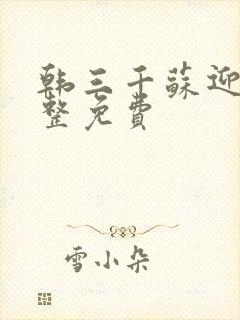 韩三千蘇迎
整免費
雪小朵